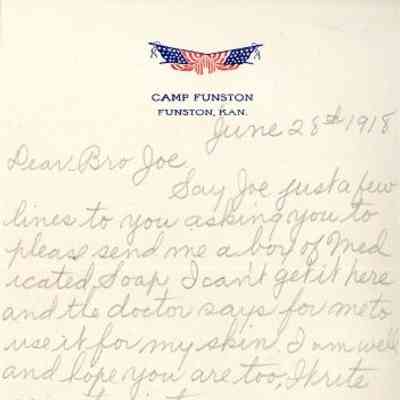 CAMP FUNSTON
FUNSTON, KAN.
June 28th 1918
Dear Bro Joe
Say Joe just a few
lines to you asking you to
please send me a box of Med
icated Soap, I can't get it here
and the doctor says for me to
use it for my skin. I am well
and hope you are too, I write